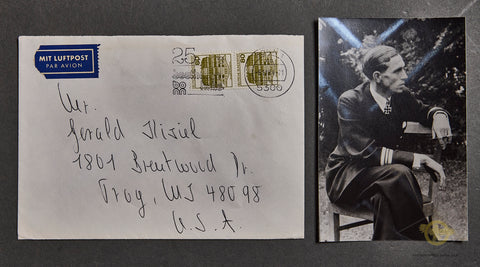 MIT LUFTPOST
PAR AVION
25
5300
Mr.
Gerald
1801 Brentwood Dr.
Troy, MI 48098
U.S.A.